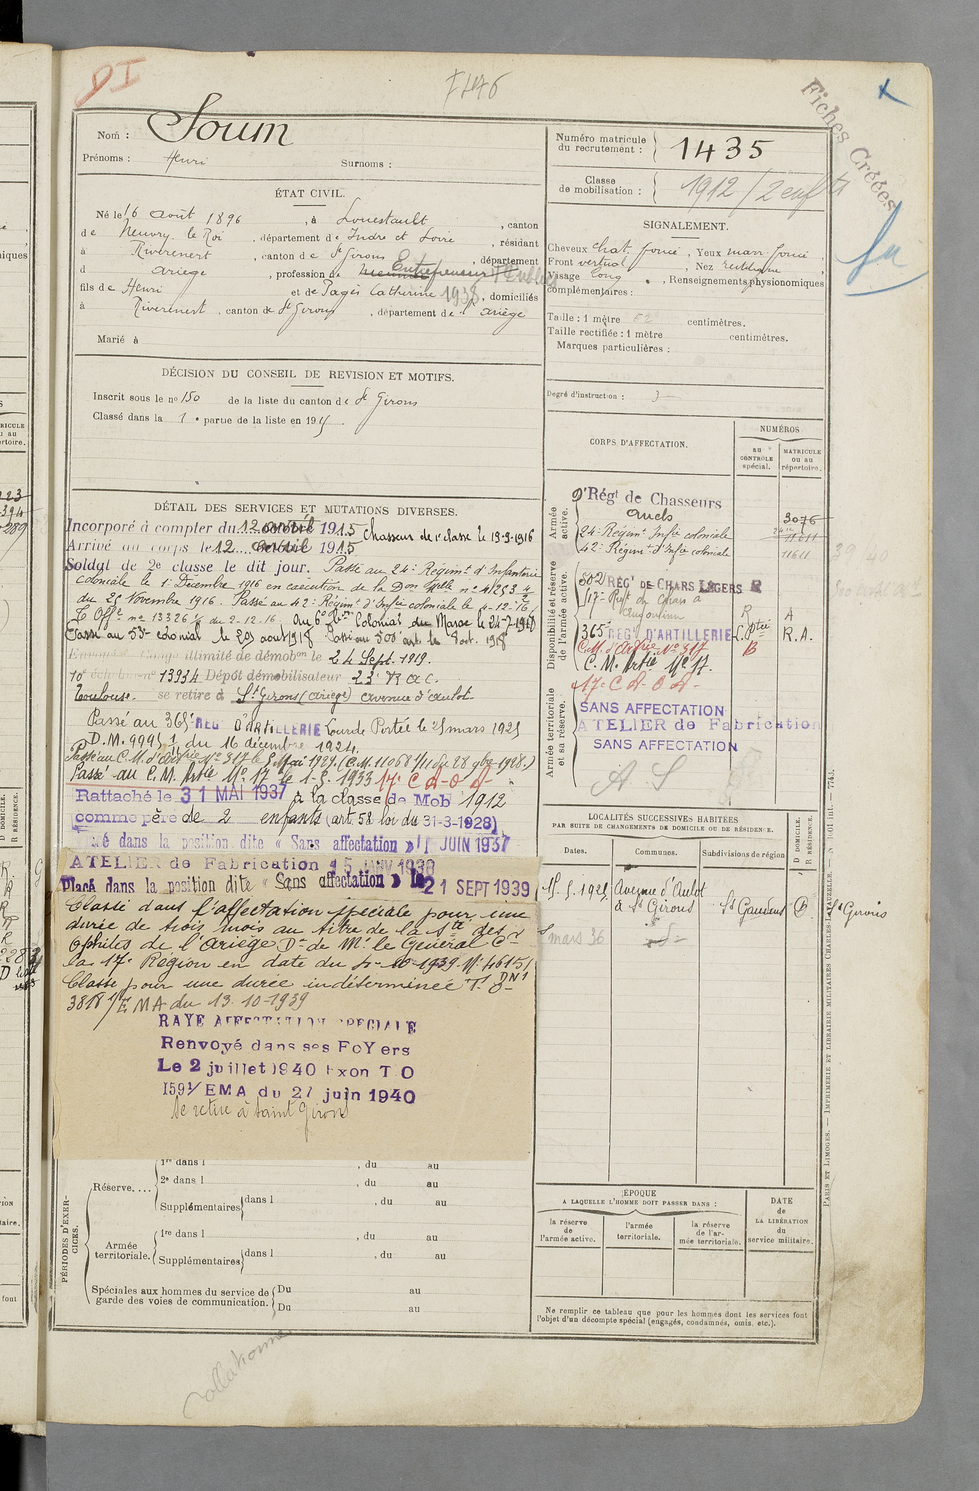 DI
7446
Fiches Créées
Nom : Soum
Prénoms : Henri Surnoms :
ÉTAT CIVIL.
Né le 16 août 1896, à Louestault, canton
de Neuvy le Roi, département de Indre et Loire, résidant
à Rivèrenert, canton de St Girons, département
d Ariège, profession de Entrepreneur T. Publics
fils de Henri et de Pagès Catherine 1938, domiciliés
à Rivèrenert, canton de St Girons, département de l'Ariège
Marié à
DÉCISION DU CONSEIL DE REVISION ET MOTIFS.
Inscrit sous le no 150 de la liste du canton de St Girons
Classé dans la 1e partie de la liste en 1915
DÉTAIL DES SERVICES ET MUTATIONS DIVERSES.
Incorporé à compter du 12 avril 1915 Chasseur de 1e classe le 19-9-1916
Arrivé au corps le 12 avril 1915
Soldat de 2e classe le dit jour. Passé au 24e Régimt d'Infanterie
coloniale le 1er Décembre 1916 en exécution de la Don Mlle no 41253 4/4
du 25 Novembre 1916. Passé au 42e Régimt d'Infie coloniale le 4-12-16
no 13326 du 2-12-16. Colonial du Maroc le 24-7-1918
Passé au 53e colonial le 20 août 1918 Passé au 500e art. 1918
illimité de démobon le 24 Sept. 1919.
10e échelon no 13934 Dépôt démobilisateur 23e R a c.
Toulouse. se retire à St Girons (Ariège) avenue d'Aulot
Passé au 365e RÉG. D'ARTILLERIE Lourde Portée le 25 mars 1925
D.M. 9995 1/1 du 16 décembre 1924.
Passé au C.M. d'artie No 317 le 1 Mai 1929 (C.M. 11068 1/11 du 28 9bre 1928.)
Passé au C.M. Artie No 17 le 1-5-1933 17e C A O A
Rattaché le 31 MAI 1937 à la classe de Mob 1912
comme père de 2 enfants (art 58 loi du 31-3-1928)
dans la position dite « Sans affectation » 1 JUIN 1937
ATELIER de Fabrication 15 JANV 1938
Placé dans la position dite « Sans affectation » le 21 SEPT 1939
Classé dans l'affectation spéciale pour une
durée de trois mois au titre de la Sté des
Ophites de l'Ariège Dn de Mr le Général Ct
la 17e Région en date du 4-10-1939. No 46151
Classé pour une durée indéterminée T. O
3818 1/EMA du 13-10-1939
RAYE AFFECTATION SPECIALE
Renvoyé dans ses FoYers
Le 2 juillet 1940 Exon T O
1591/EMA du 27 juin 1940
Se retire à Saint Girons
PÉRIODES D'EXERCICES.
Réserve....
1re dans l , du au
2e dans l , du au
Supplémentaires dans l , du au
Armée territoriale.
1re dans l , du au
Supplémentaires dans l , du au
Spéciales aux hommes du service de garde des voies de communication.
Du au
Du au
Collationné
Numéro matricule du recrutement : 1435
Classe de mobilisation : 1912 / 2 enfts
SIGNALEMENT.
Cheveux chat. foncé, Yeux marr. foncé,
Front vertical, Nez rectiligne
Visage long, Renseignements physionomiques
complémentaires :
Taille : 1 mètre centimètres.
Taille rectifiée : 1 mètre centimètres.
Marques particulières :
Degré d'instruction : 3
CORPS D'AFFECTATION.
NUMÉROS
au CONTRÔLE spécial.
MATRICULE ou au répertoire.
Armée active.
9e Régt de Chasseurs
Auch 3076
24e Régimt Infie coloniale 11611
42e Régimt d'Infie coloniale 11611
Disponibilité et réserve de l'armée active.
502 RÉGt DE CHARS LÉGERS R
517e Régt de Chars à R A
365e RÉG D'ARTILLERIE L. Ptée R.A.
C.M. d'Artie No 317 B
C.M. Artie No 17.
17e C A O A
Armée territoriale et sa réserve.
SANS AFFECTATION
ATELIER de Fabrication
SANS AFFECTATION
A S
LOCALITÉS SUCCESSIVES HABITÉES
PAR SUITE DE CHANGEMENTS DE DOMICILE OU DE RÉSIDENCE.
Dates. Communes. Subdivisions de région D DOMICILE. R RÉSIDENCE.
15-5-1925 Avenue d'Aulot
à St Girons St Gaudens D St Girons
mars 36
ÉPOQUE
A LAQUELLE L'HOMME DOIT PASSER DANS :
la réserve de l'armée active.
l'armée territoriale.
la réserve de l'armée territoriale.
DATE de LA LIBÉRATION du service militaire.
Ne remplir ce tableau que pour les hommes dont les services font
l'objet d'un décompte spécial (engagés, condamnés, omis, etc.).
PARIS ET LIMOGES. — IMPRIMERIE ET LIBRAIRIE MILITAIRES CHARLES-LAVAUZELLE.